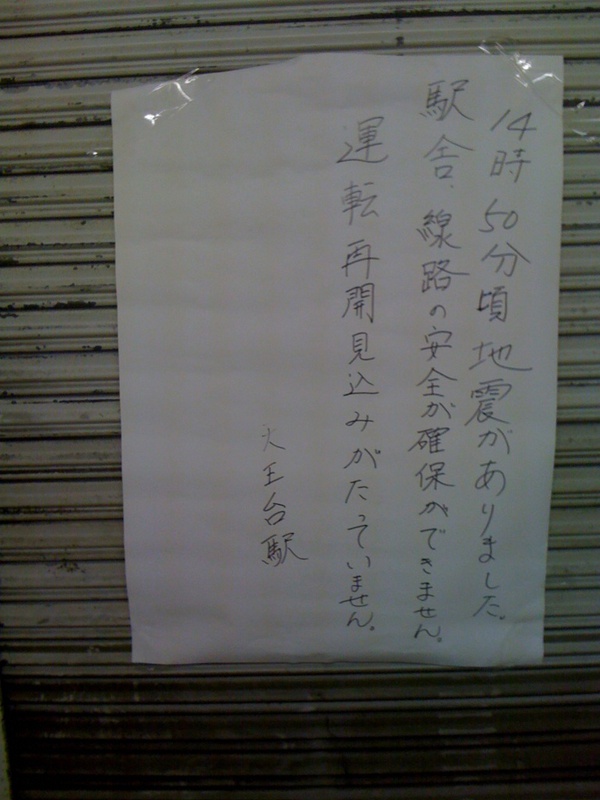 14時50分頃地震がありました。
駅舎、線路の安全が確保ができません。
運転再開見込みがたっていません。
天王台駅